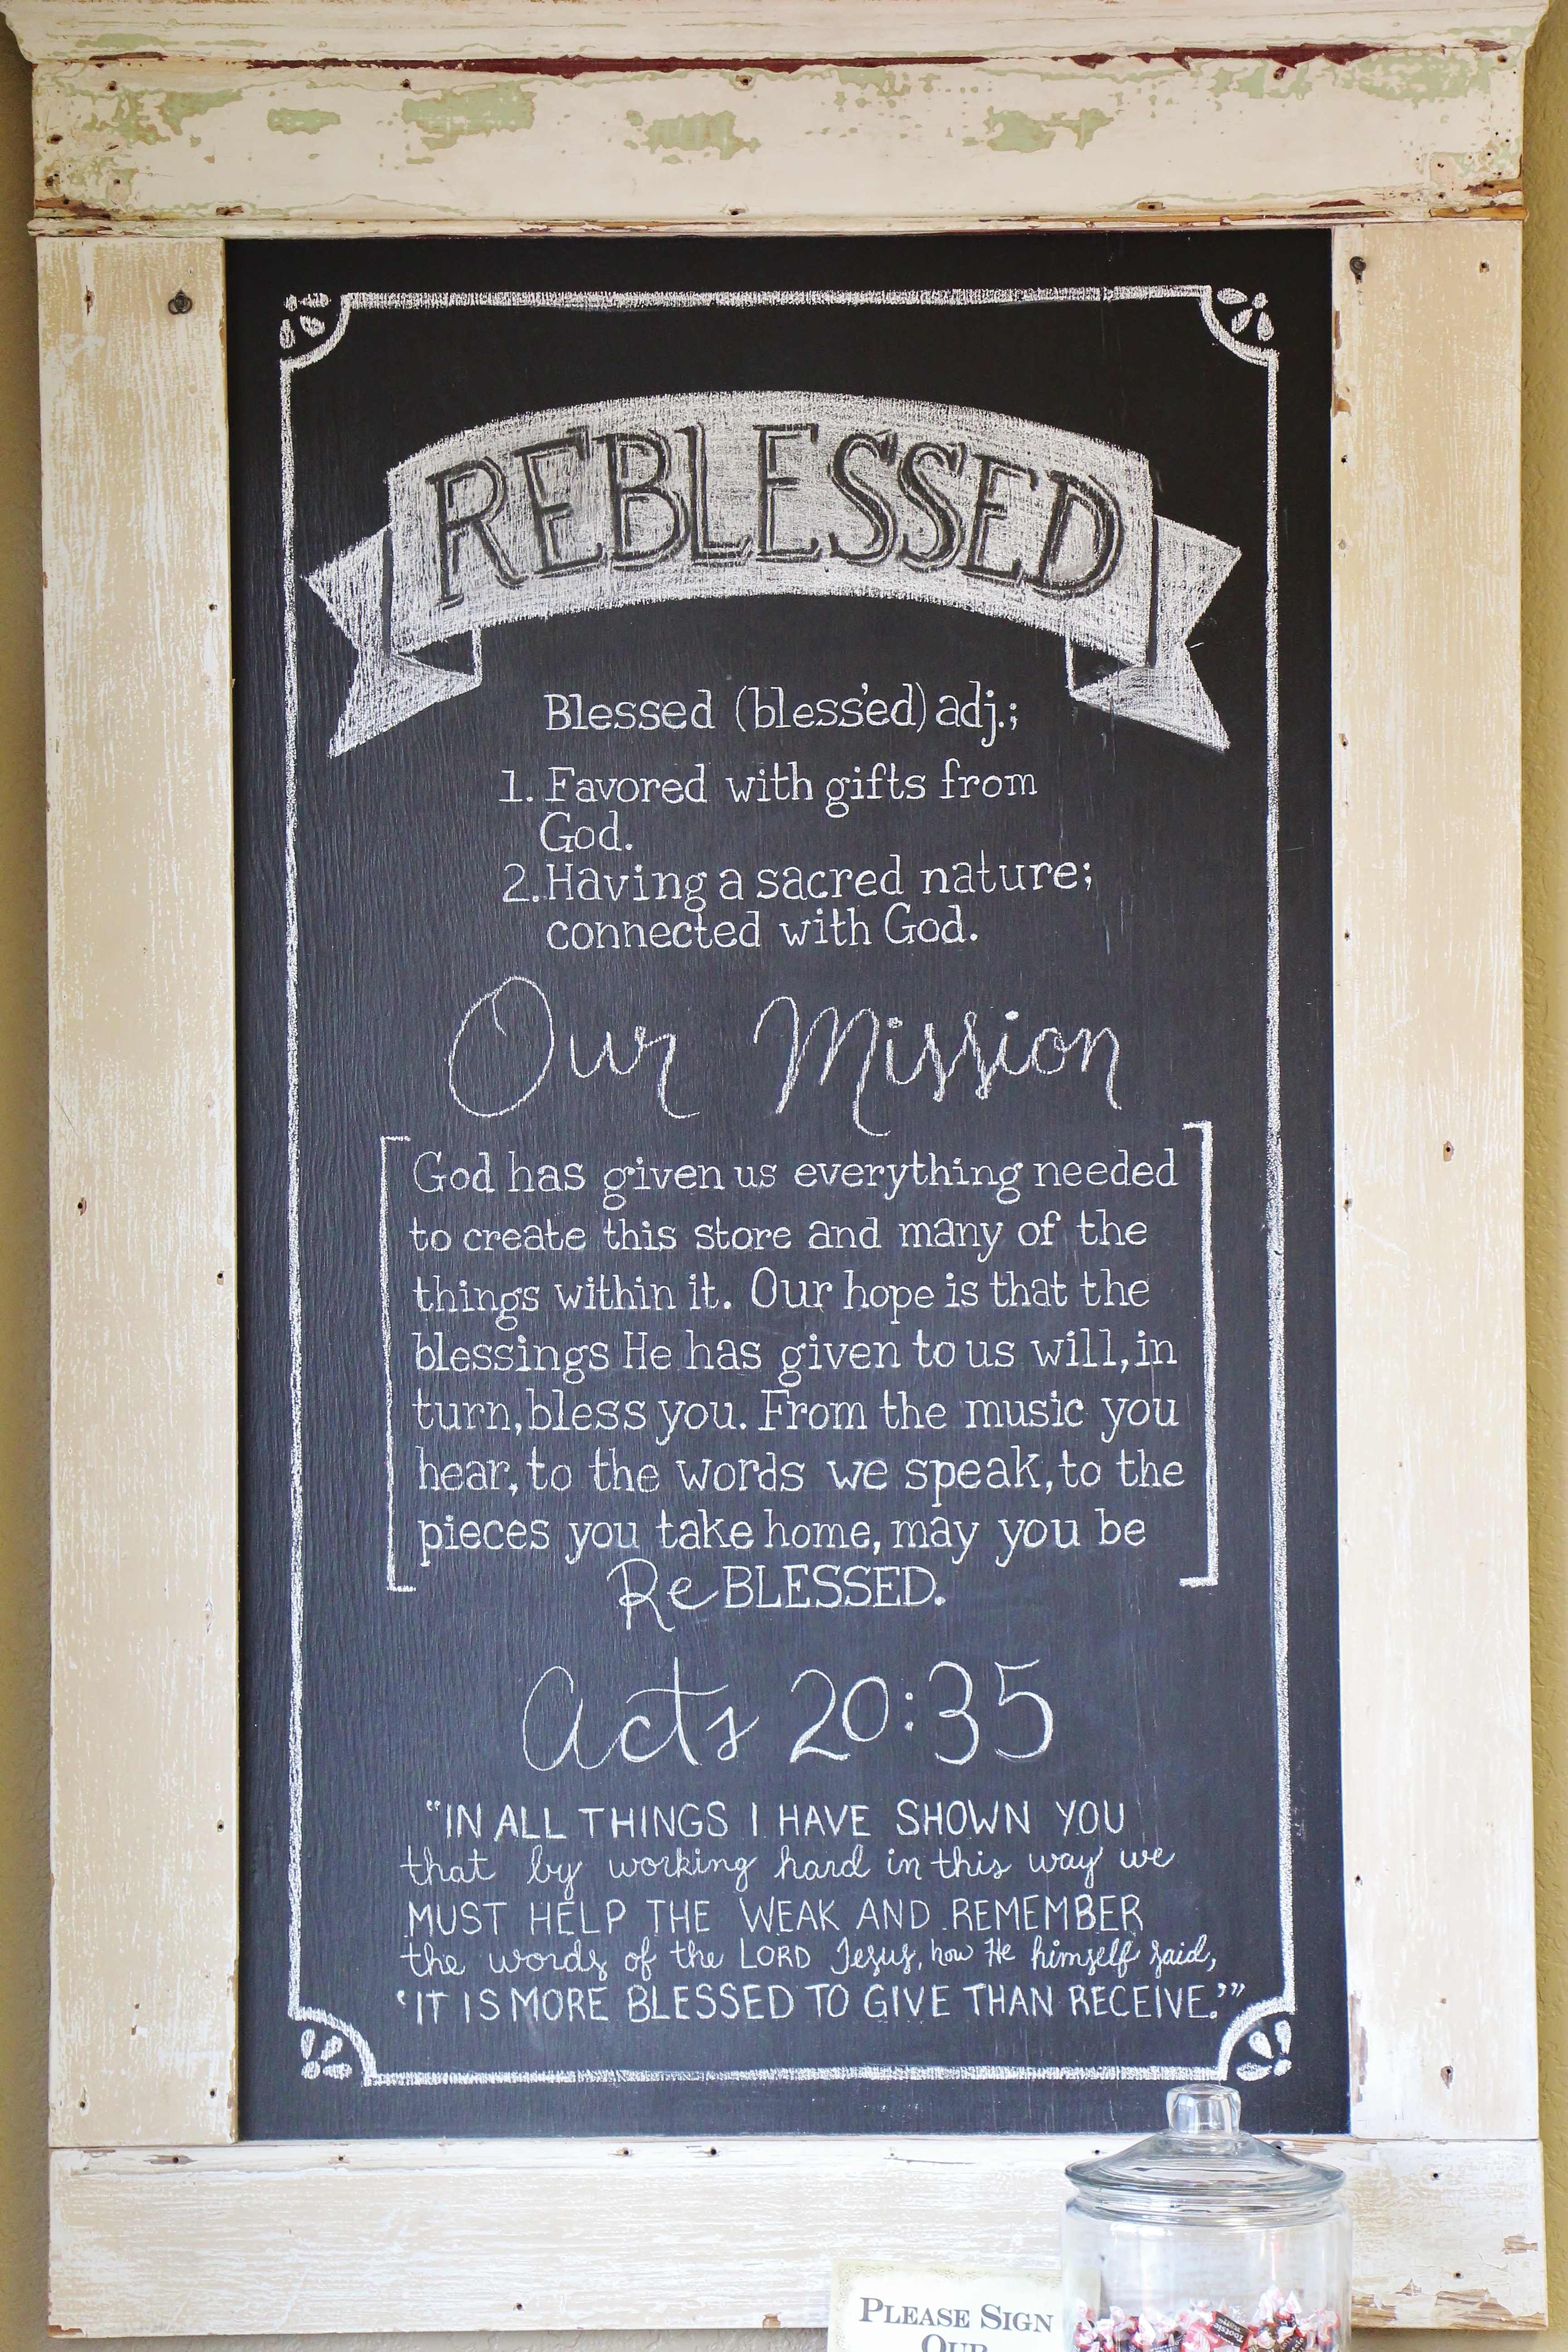 REBLESSED
Blessed (bless'ed) adj.;
1. Favored with gifts from
God.
2. Having a sacred nature;
connected with God.
Our Mission
God has given us everything needed
to create this store and many of the
things within it. Our hope is that the
blessings He has given to us will, in
turn, bless you. From the music you
hear, to the words we speak, to the
pieces you take home, may you be
ReBLESSED.
Acts 20:35
"IN ALL THINGS I HAVE SHOWN YOU
that by working hard in this way we
MUST HELP THE WEAK AND REMEMBER
the words of the LORD Jesus, how He himself said,
'IT IS MORE BLESSED TO GIVE THAN RECEIVE.'"
PLEASE SIGN
OUR
Tootsie